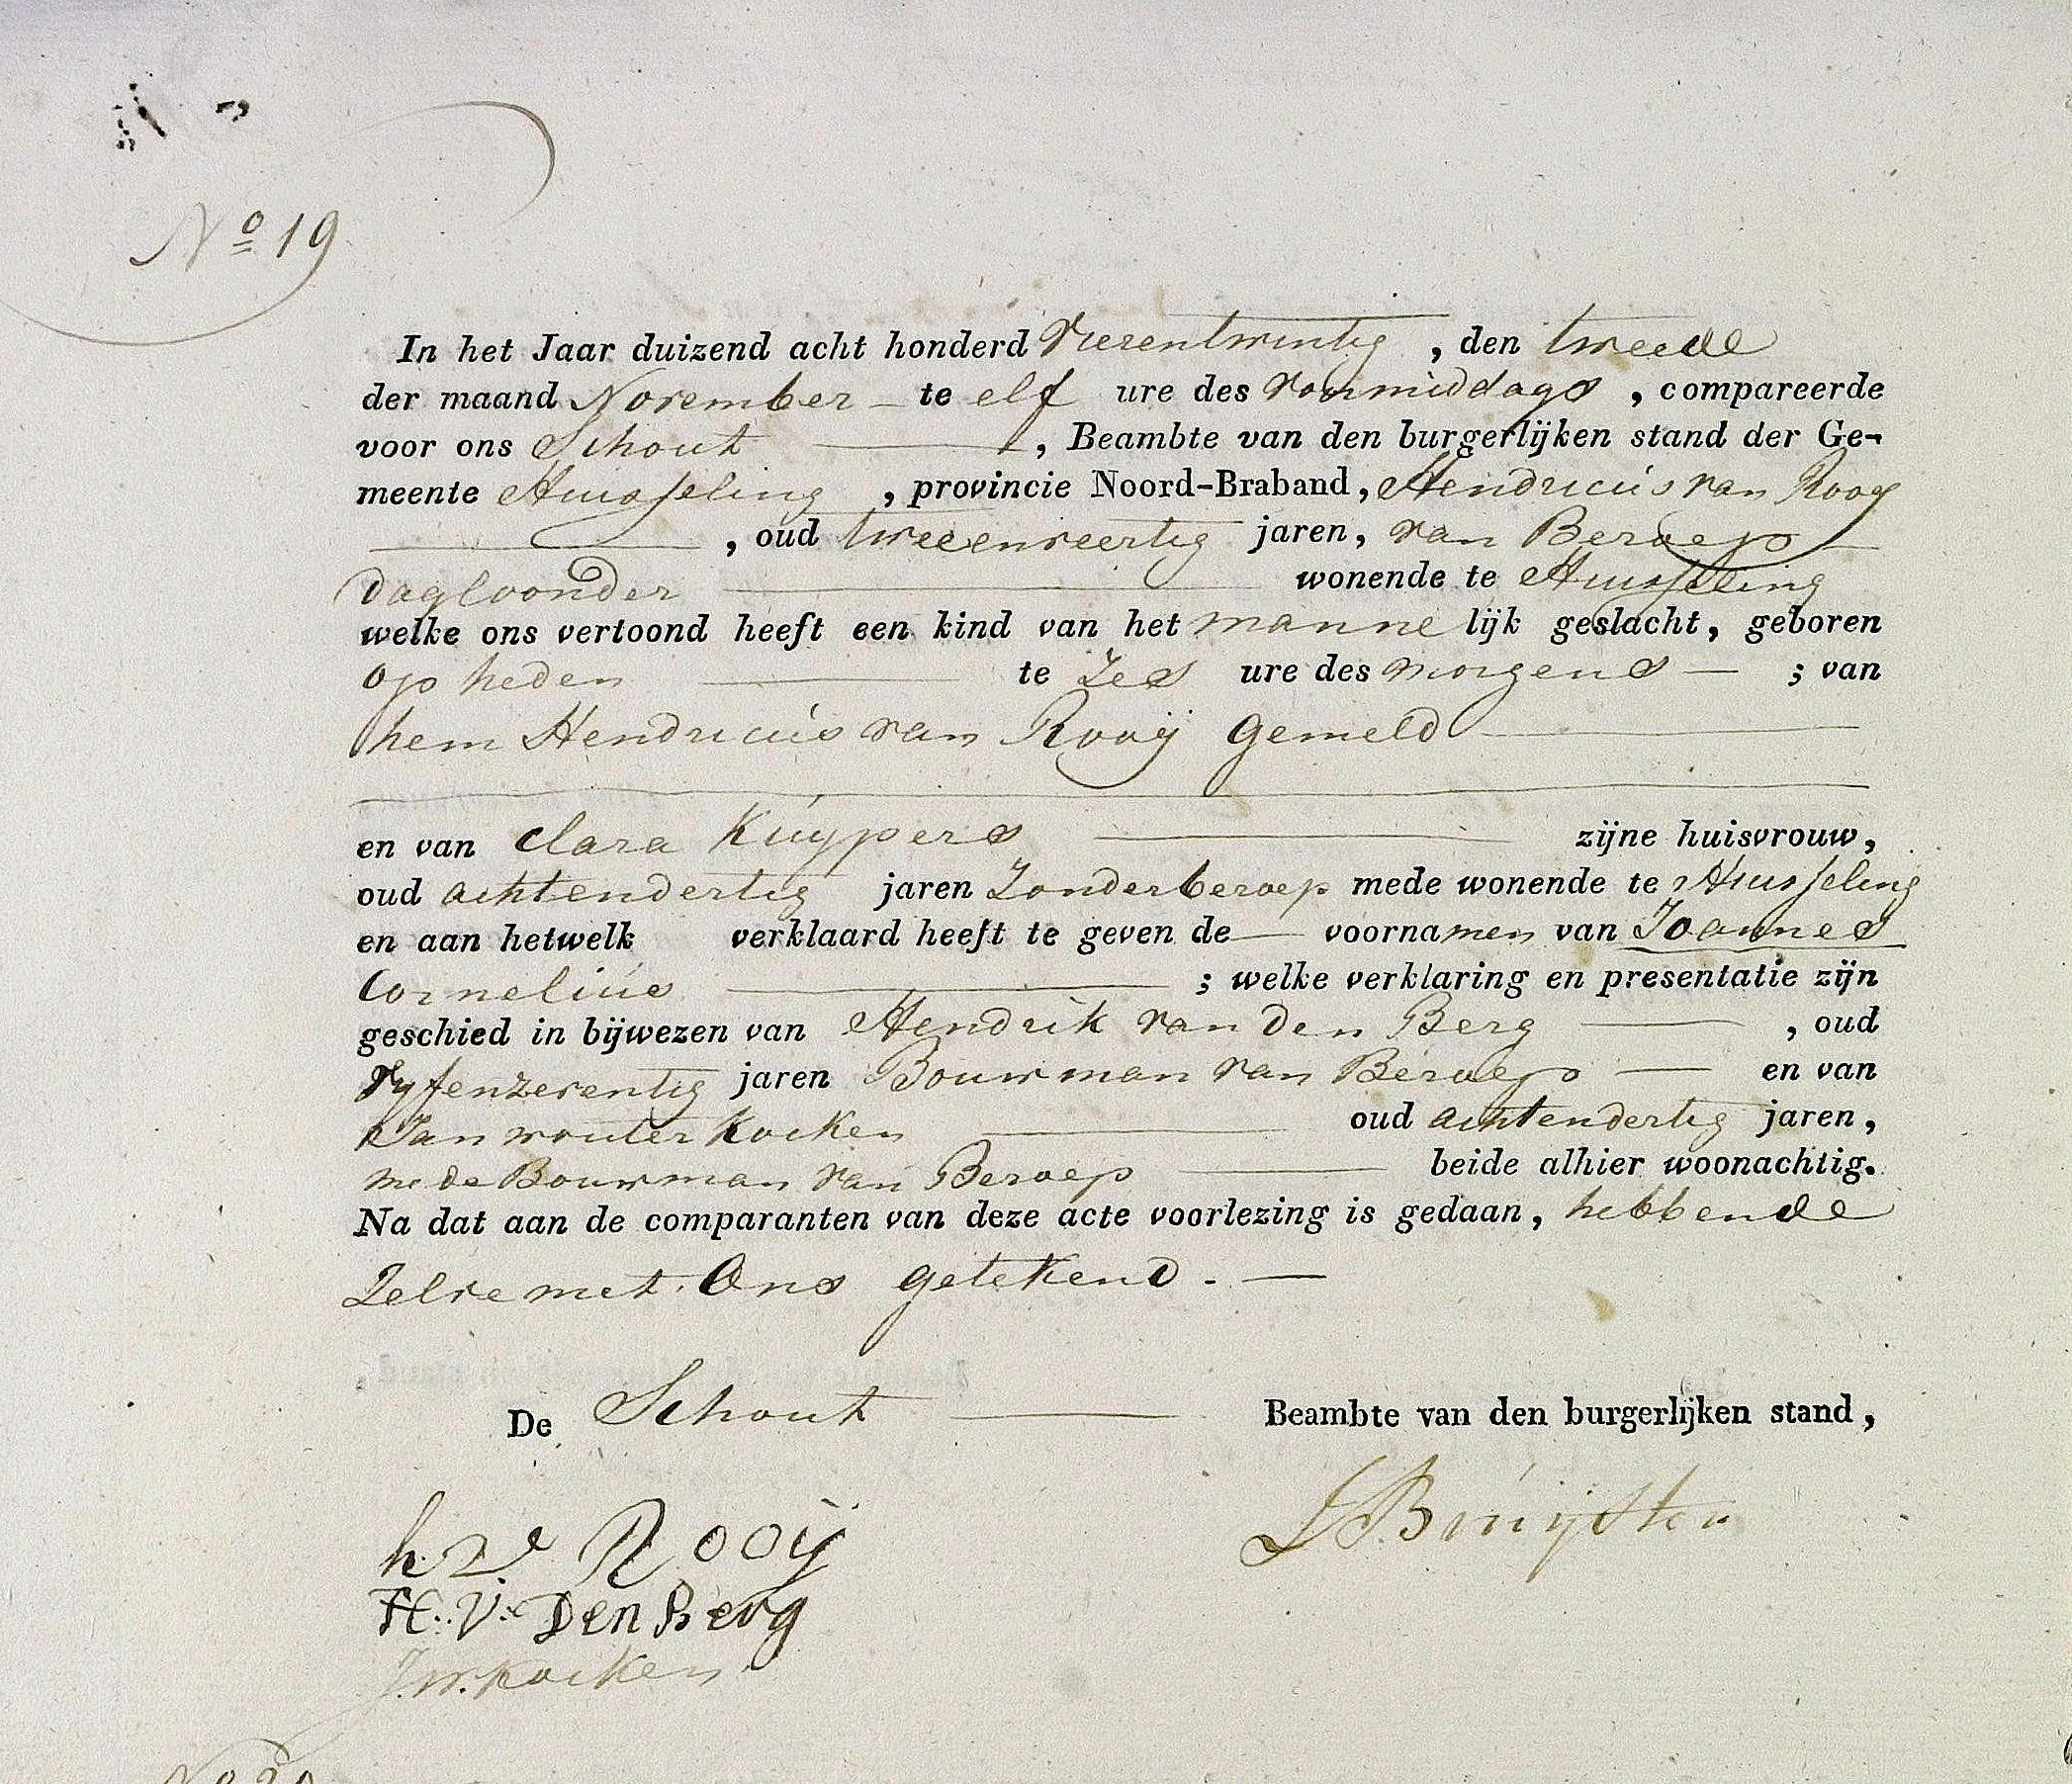 Nº 19
In het Jaar duizend acht honderd Vierentwintig , den tweede
der maand November te elf ure des voormiddags , compareerde
voor ons Schout , Beambte van den burgerlijken stand der Ge-
meente Huisseling , provincie Noord-Braband, Hendricus van Rooy
, oud tweeenveertig jaren, van Beroep
Dagloonder wonende te Huisseling
welke ons vertoond heeft een kind van het mannelijk geslacht, geboren
op heden te Zes ure des morgens ; van
hem Hendricus van Rooij gemeld
en van Clara Kuypers zijne huisvrouw,
oud achtendertig jaren Zonder beroep mede wonende te Huisseling
en aan hetwelk verklaard heeft te geven de voornamen van Joannes
Cornelius ; welke verklaring en presentatie zijn
geschied in bijwezen van Hendrik van den Berg , oud
Vyfenzeventig jaren Bouwman van Beroep en van
Jan Wouter Kocken oud achtendertig jaren,
mede Bouwman van Beroep beide alhier woonachtig.
Na dat aan de comparanten van deze acte voorlezing is gedaan, hebbende
Zelve met Ons getekend.
De Schout Beambte van den burgerlijken stand,
h v Rooij
H. V. Den Berg
J.W. Kocken
Nº 20